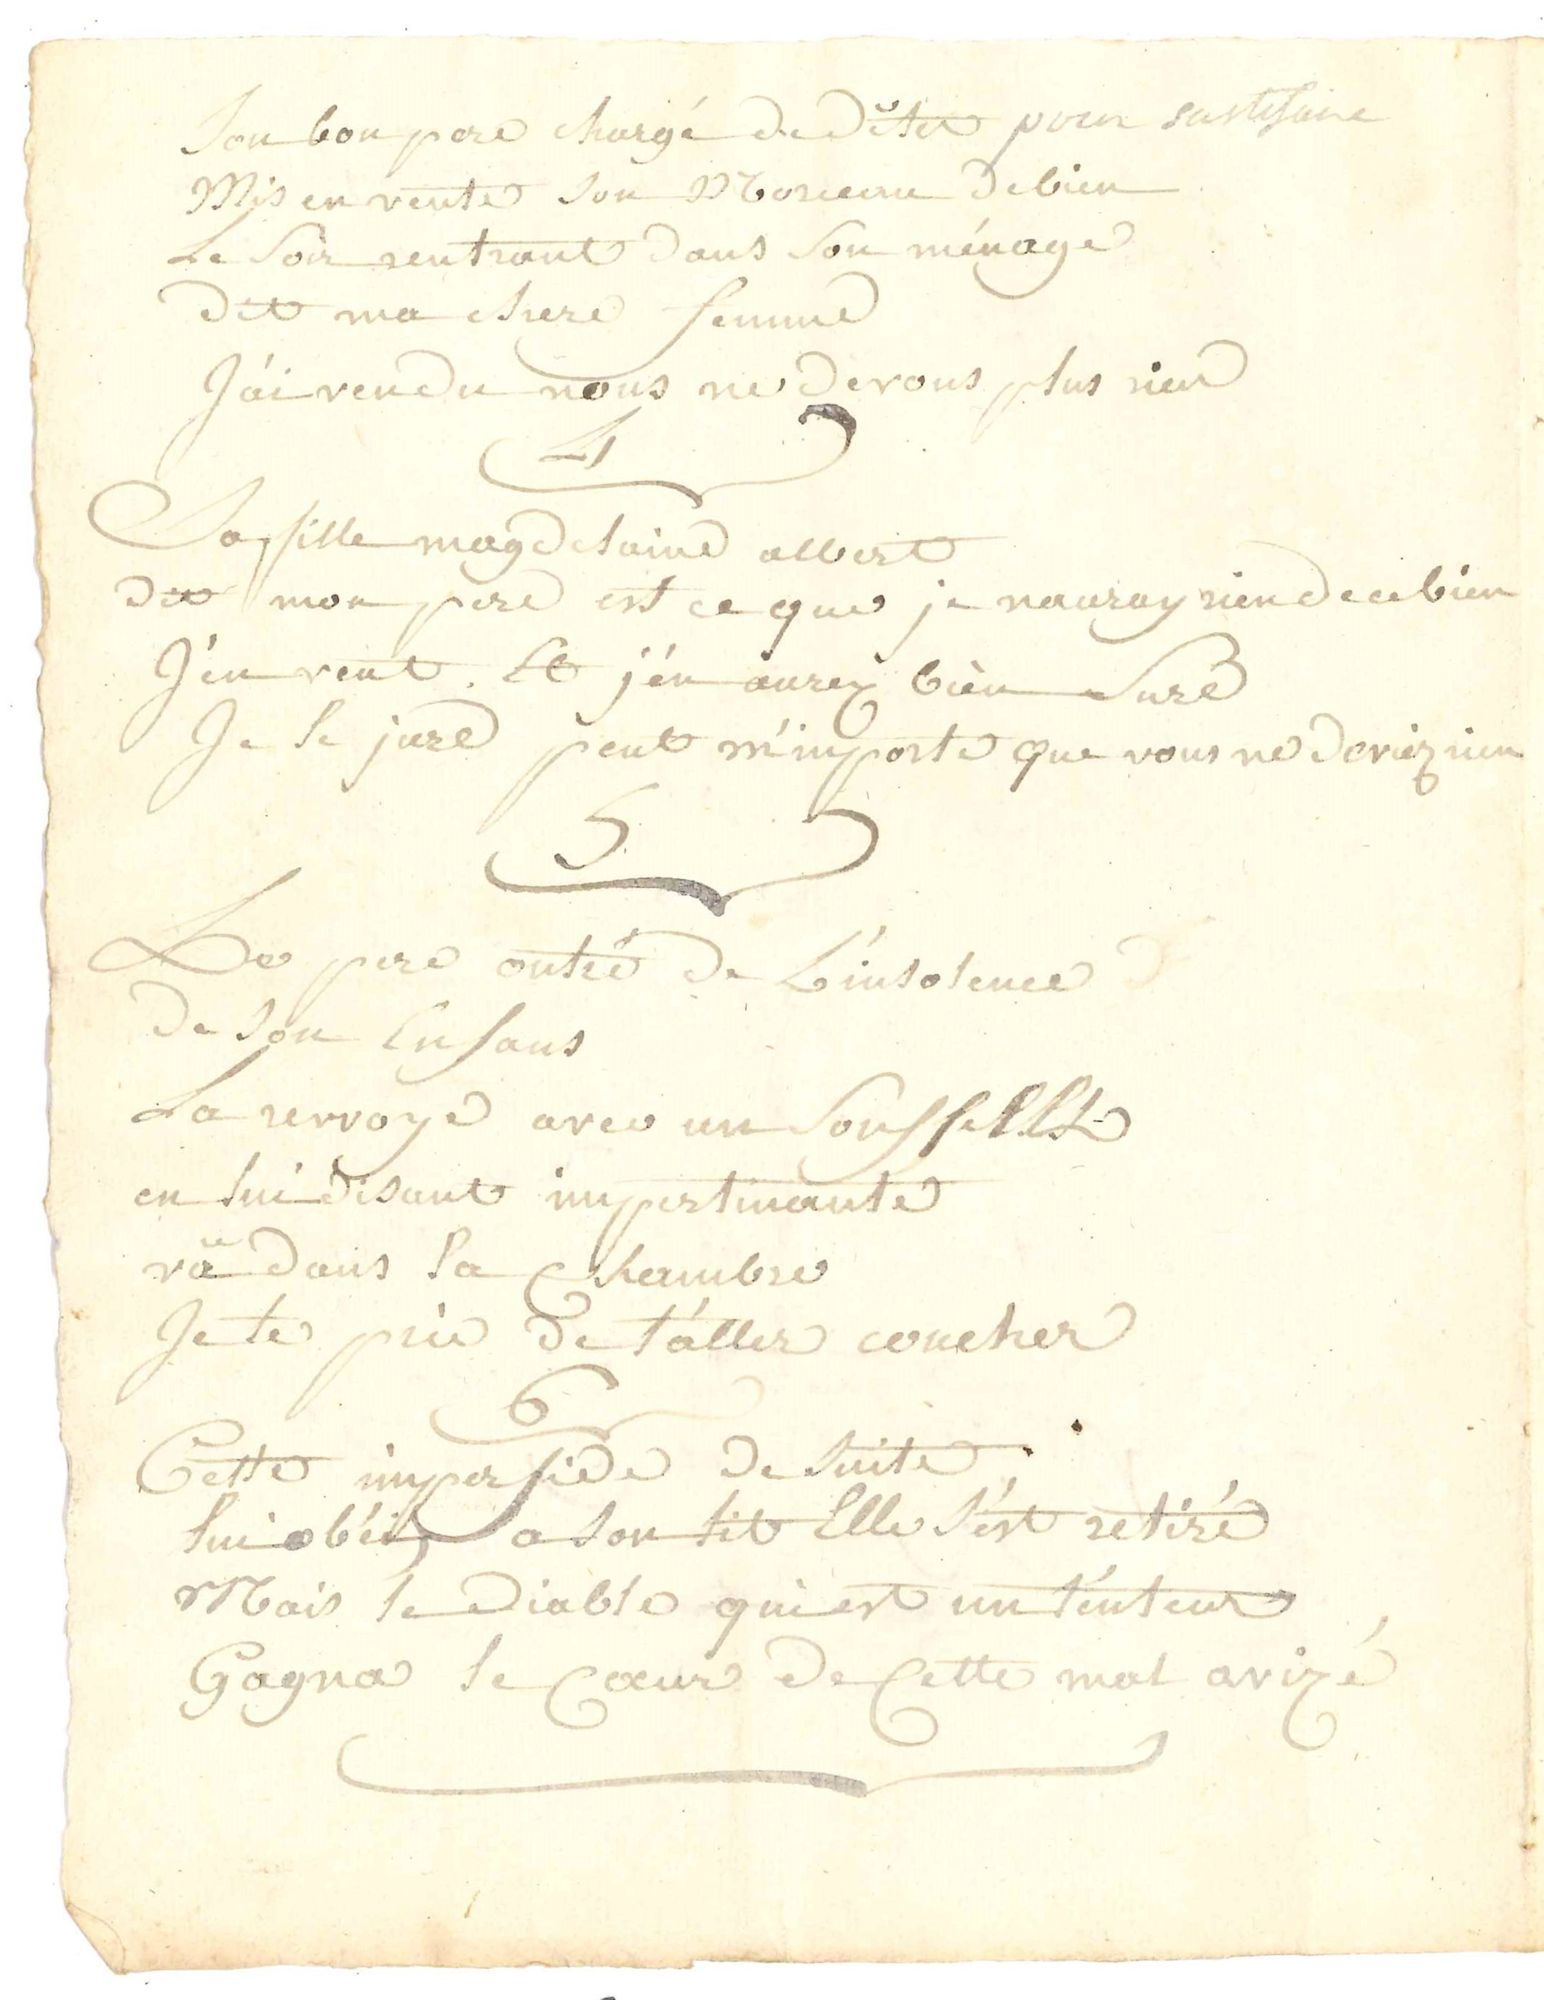 Son bon pere chargé de dète pour sastisfaire
Mis en vente son Morceau de bien
Le Soir rentrant dans Son ménage
dit ma chere femme
J'ai vendu nous ne devons plus rien
4
Sa fille magdelaine albert
dit mon pere est ce que je nauray rien de ce bien
J'en veut. Et j'én aurez bièn Sure
Je le jure peut m'importe que vous ne deviez rien
5
Le pere outré de L'insolence
de son Enfans
La renvoye avec un Soufflet
en lui disant impertinante
va dans la Chambre
Je te prie de t'aller coucher
6
Cette imperfide de Suite
lui obéit a son lit Elle s'ést retiré
Mais le Diable qui est un ténteur
Gagna le Cœur de Cette mal avizé